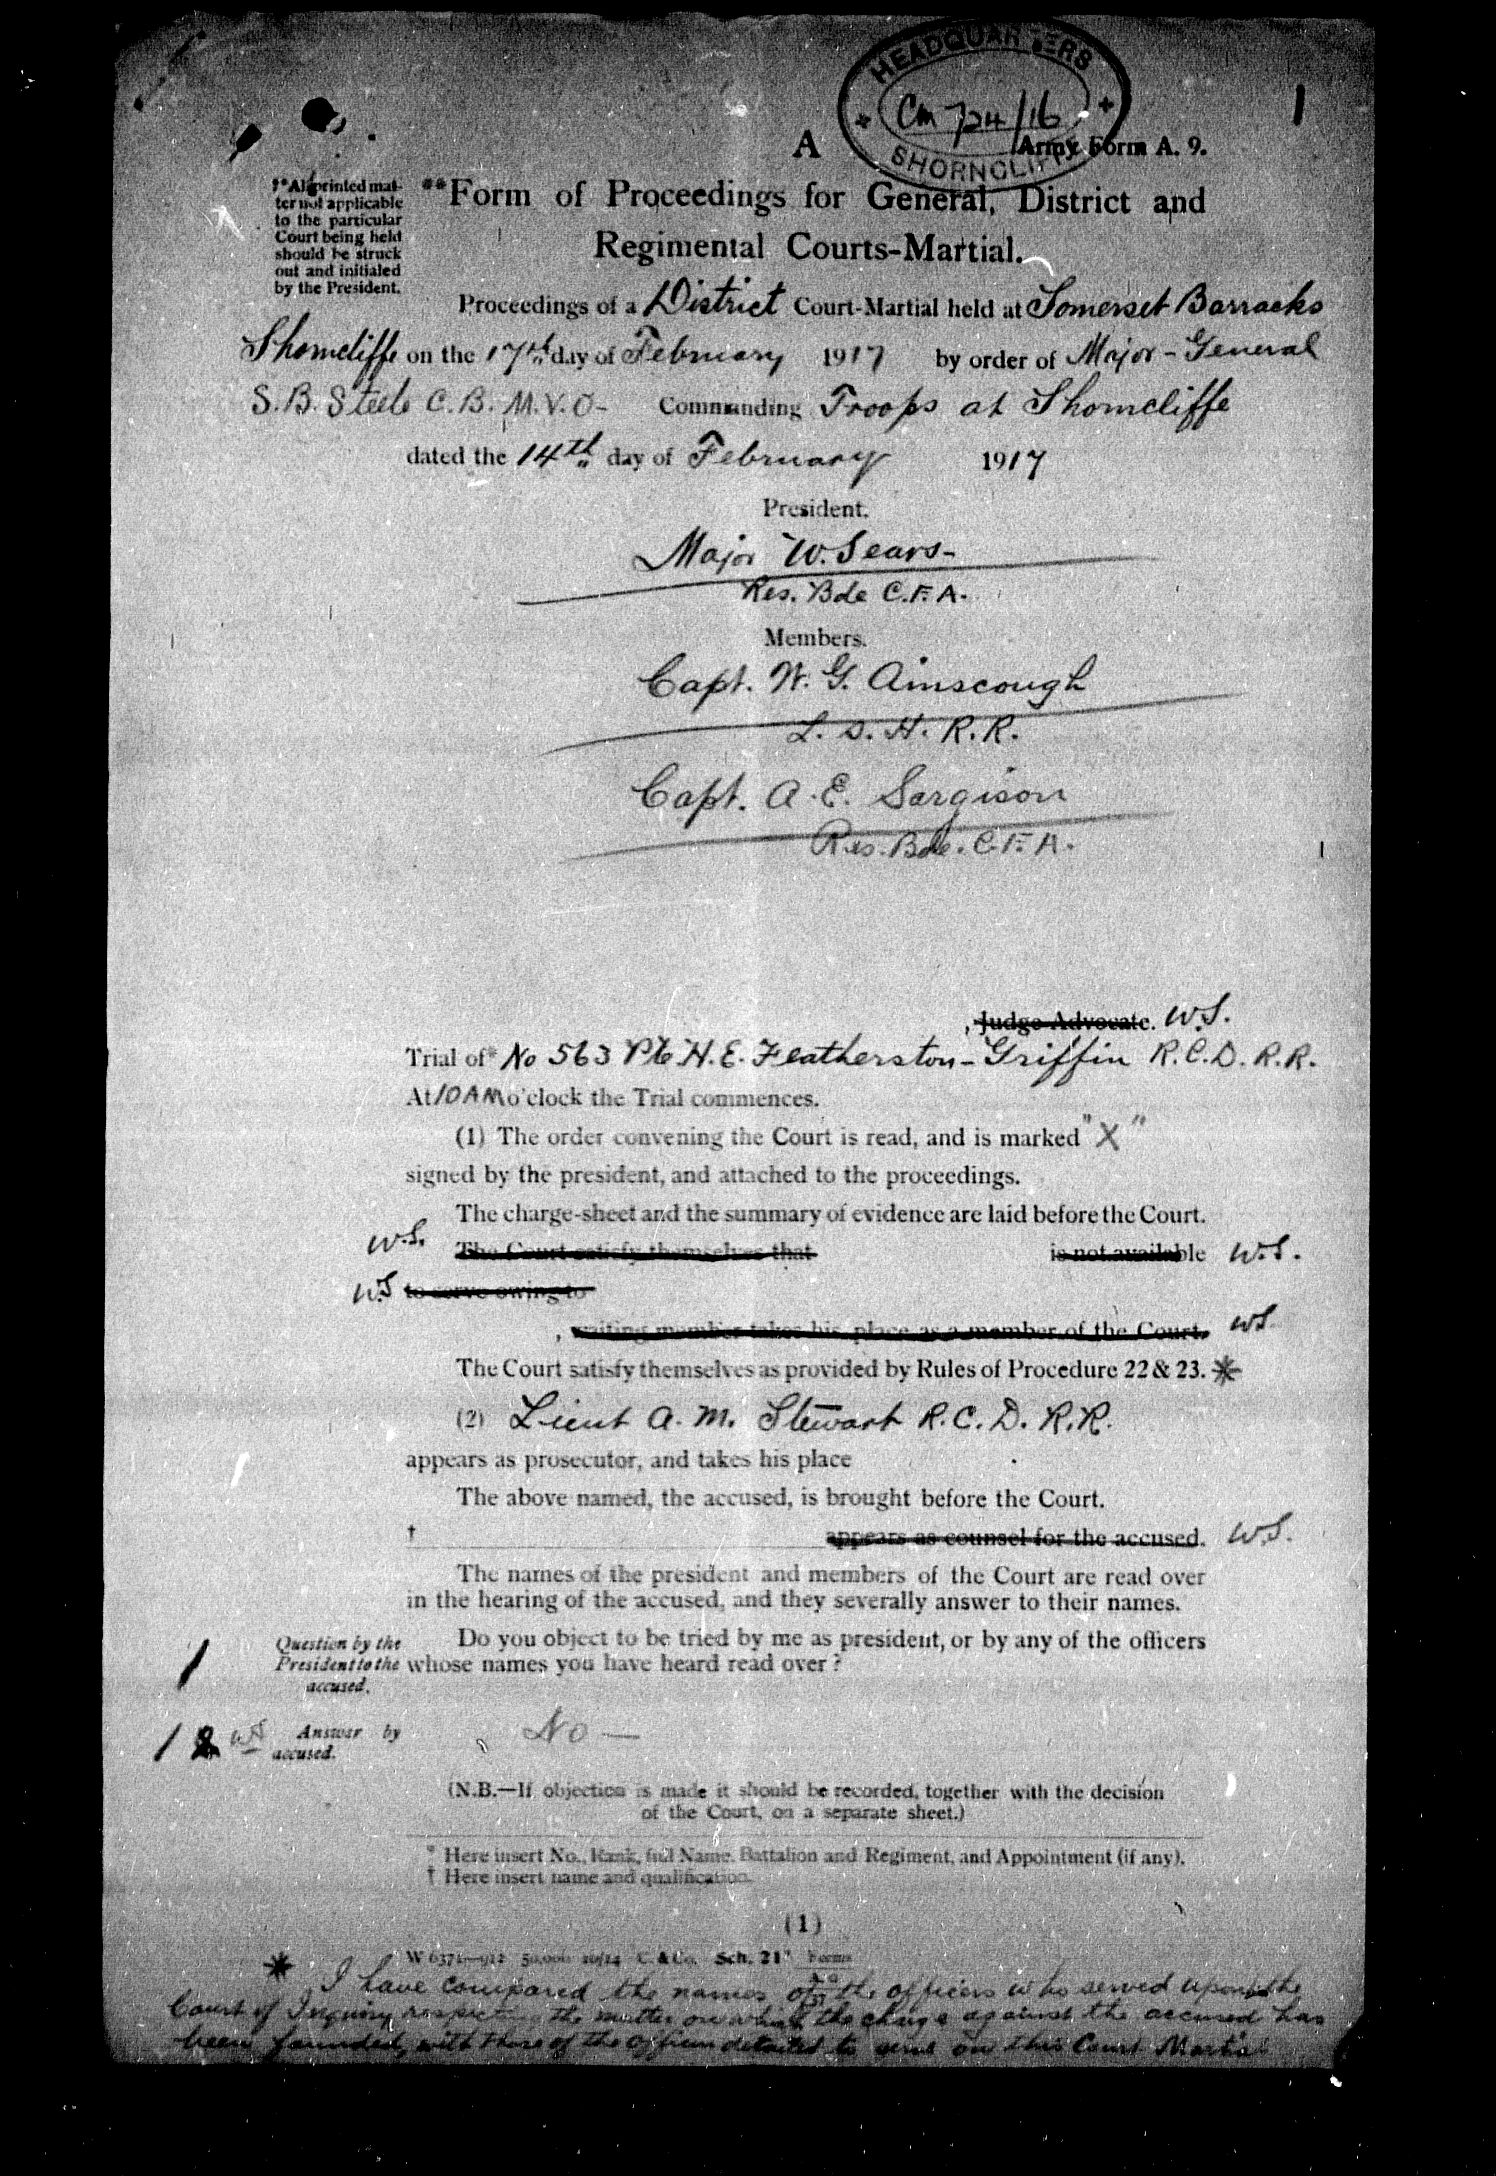 HEADQUARTERS
CM 724/16
SHORNCLIFFE
1
A
Army Form A. 9.
**All printed matter not applicable to the particular Court being held should be struck out and initialed by the President.
**Form of Proceedings for General, District and
Regimental Courts-Martial.
Proceedings of a District Court-Martial held at Somerset Barracks
Shorncliffe on the 17th day of February 1917 by order of Major-General
S.B. Steele C.B. M.V.O- Commanding Troops at Shorncliffe
dated the 14th day of February 1917
President.
Major W. Sears-
Res. Bde C.F.A.
Members.
Capt. W. G. Ainscough
L. S. H. R.R.
Capt. A. E. Sargison
Res. Bde. C.F.A.
, Judge Advocate. W.S.
Trial of* No 563 Pte H.E. Featherston-Griffin R.C.D. R.R.
At 10 AM o'clock the Trial commences.
(1) The order convening the Court is read, and is marked "X"
signed by the president, and attached to the proceedings.
The charge-sheet and the summary of evidence are laid before the Court.
W.S. The Court satisfy themselves that is not available W.S.
W.S to serve owing to
, waiting member takes his place as a member of the Court. WS.
The Court satisfy themselves as provided by Rules of Procedure 22 & 23. *
(2) Lieut A. M. Stewart R.C.D. R.R.
appears as prosecutor, and takes his place
The above named, the accused, is brought before the Court.
† appears as counsel for the accused. W.S.
The names of the president and members of the Court are read over
in the hearing of the accused, and they severally answer to their names.
1 Question by the President to the accused. Do you object to be tried by me as president, or by any of the officers
whose names you have heard read over?
1 2 WS Answer by accused. No—
(N.B.—If objection is made it should be recorded, together with the decision
of the Court, on a separate sheet.)
* Here insert No., Rank, full Name, Battalion and Regiment, and Appointment (if any).
† Here insert name and qualification.
(1)
50,000 10/14 C. & Co. Sch. 21 Forms
* I have compared the names of the officers who served upon the
Court of Inquiry respecting the matter on which the charge against the accused has
been founded, with those of the officers detailed to serve on this Court Martial